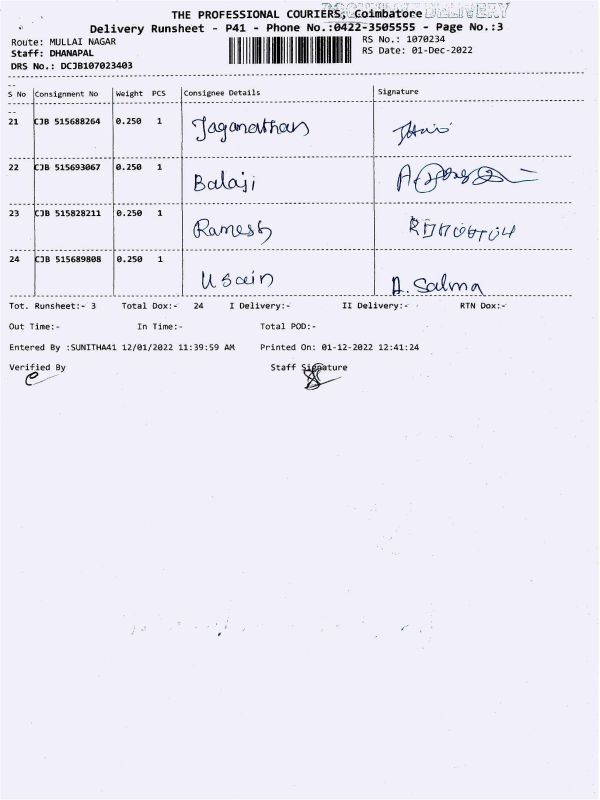 THE PROFESSIONAL COURIERS, Coimbatore
DOCUMENT DELIVERY
Delivery Runsheet - P41 - Phone No.:0422-3505555 - Page No.:3
Route: MULLAI NAGAR
RS No.: 1070234
Staff: DHANAPAL
RS Date: 01-Dec-2022
DRS No.: DCJB107023403
S No Consignment No Weight PCS Consignee Details Signature
21 CJB 515688264 0.250 1 Jaganathan
22 CJB 515693067 0.250 1 Balaji
23 CJB 515828211 0.250 1 Ramesh
24 CJB 515689808 0.250 1 Usain A. Salma
Tot. Runsheet:- 3 Total Dox:- 24 I Delivery:- II Delivery:- RTN Dox:-
Out Time:- In Time:- Total POD:-
Entered By :SUNITHA41 12/01/2022 11:39:59 AM Printed On: 01-12-2022 12:41:24
Verified By Staff Signature